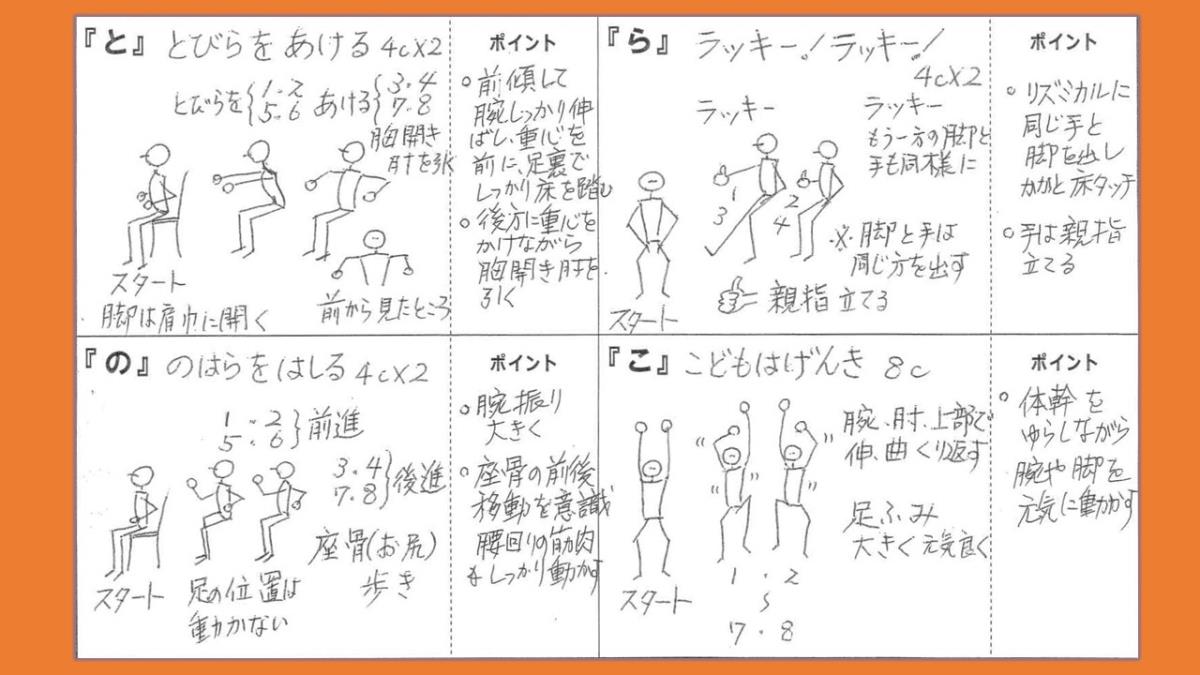 『と』 とびらを あける 4c×2
とびらを{1・2 5・6 あける{3・4 7・8
胸開き
肘を引く
スタート
脚は肩巾に開く
前から見たところ
ポイント
○前傾して
腕しっかり伸
ばし、重心を
前に、足裏で
しっかり床を踏む
○後方に重心を
かけながら
胸開き肘を
引く
『ら』 ラッキー!ラッキー!
4c×2
ラッキー
ラッキー
もう一方の脚と
手も同様に
1
3
2
4
※脚と手は
同じ方を出す
親指立てる
スタート
ポイント
○リズミカルに
同じ手と
脚を出し
かかと床タッチ
○手は親指
立てる
『の』 のはらをはしる 4c×2
1・2
5・6}前進
3・4
7・8}後進
座骨(お尻)
歩き
スタート
足の位置は
動かない
ポイント
○腕振り
大きく
○座骨の前後
移動を意識
腰回りの筋肉
をしっかり動かす
『こ』 こどもはげんき 8c
腕、肘、上部で
伸、曲くり返す
足ふみ
大きく元気良く
スタート
1・2
〜
7・8
ポイント
○体幹を
ゆらしながら
腕や脚を
元気に動かす